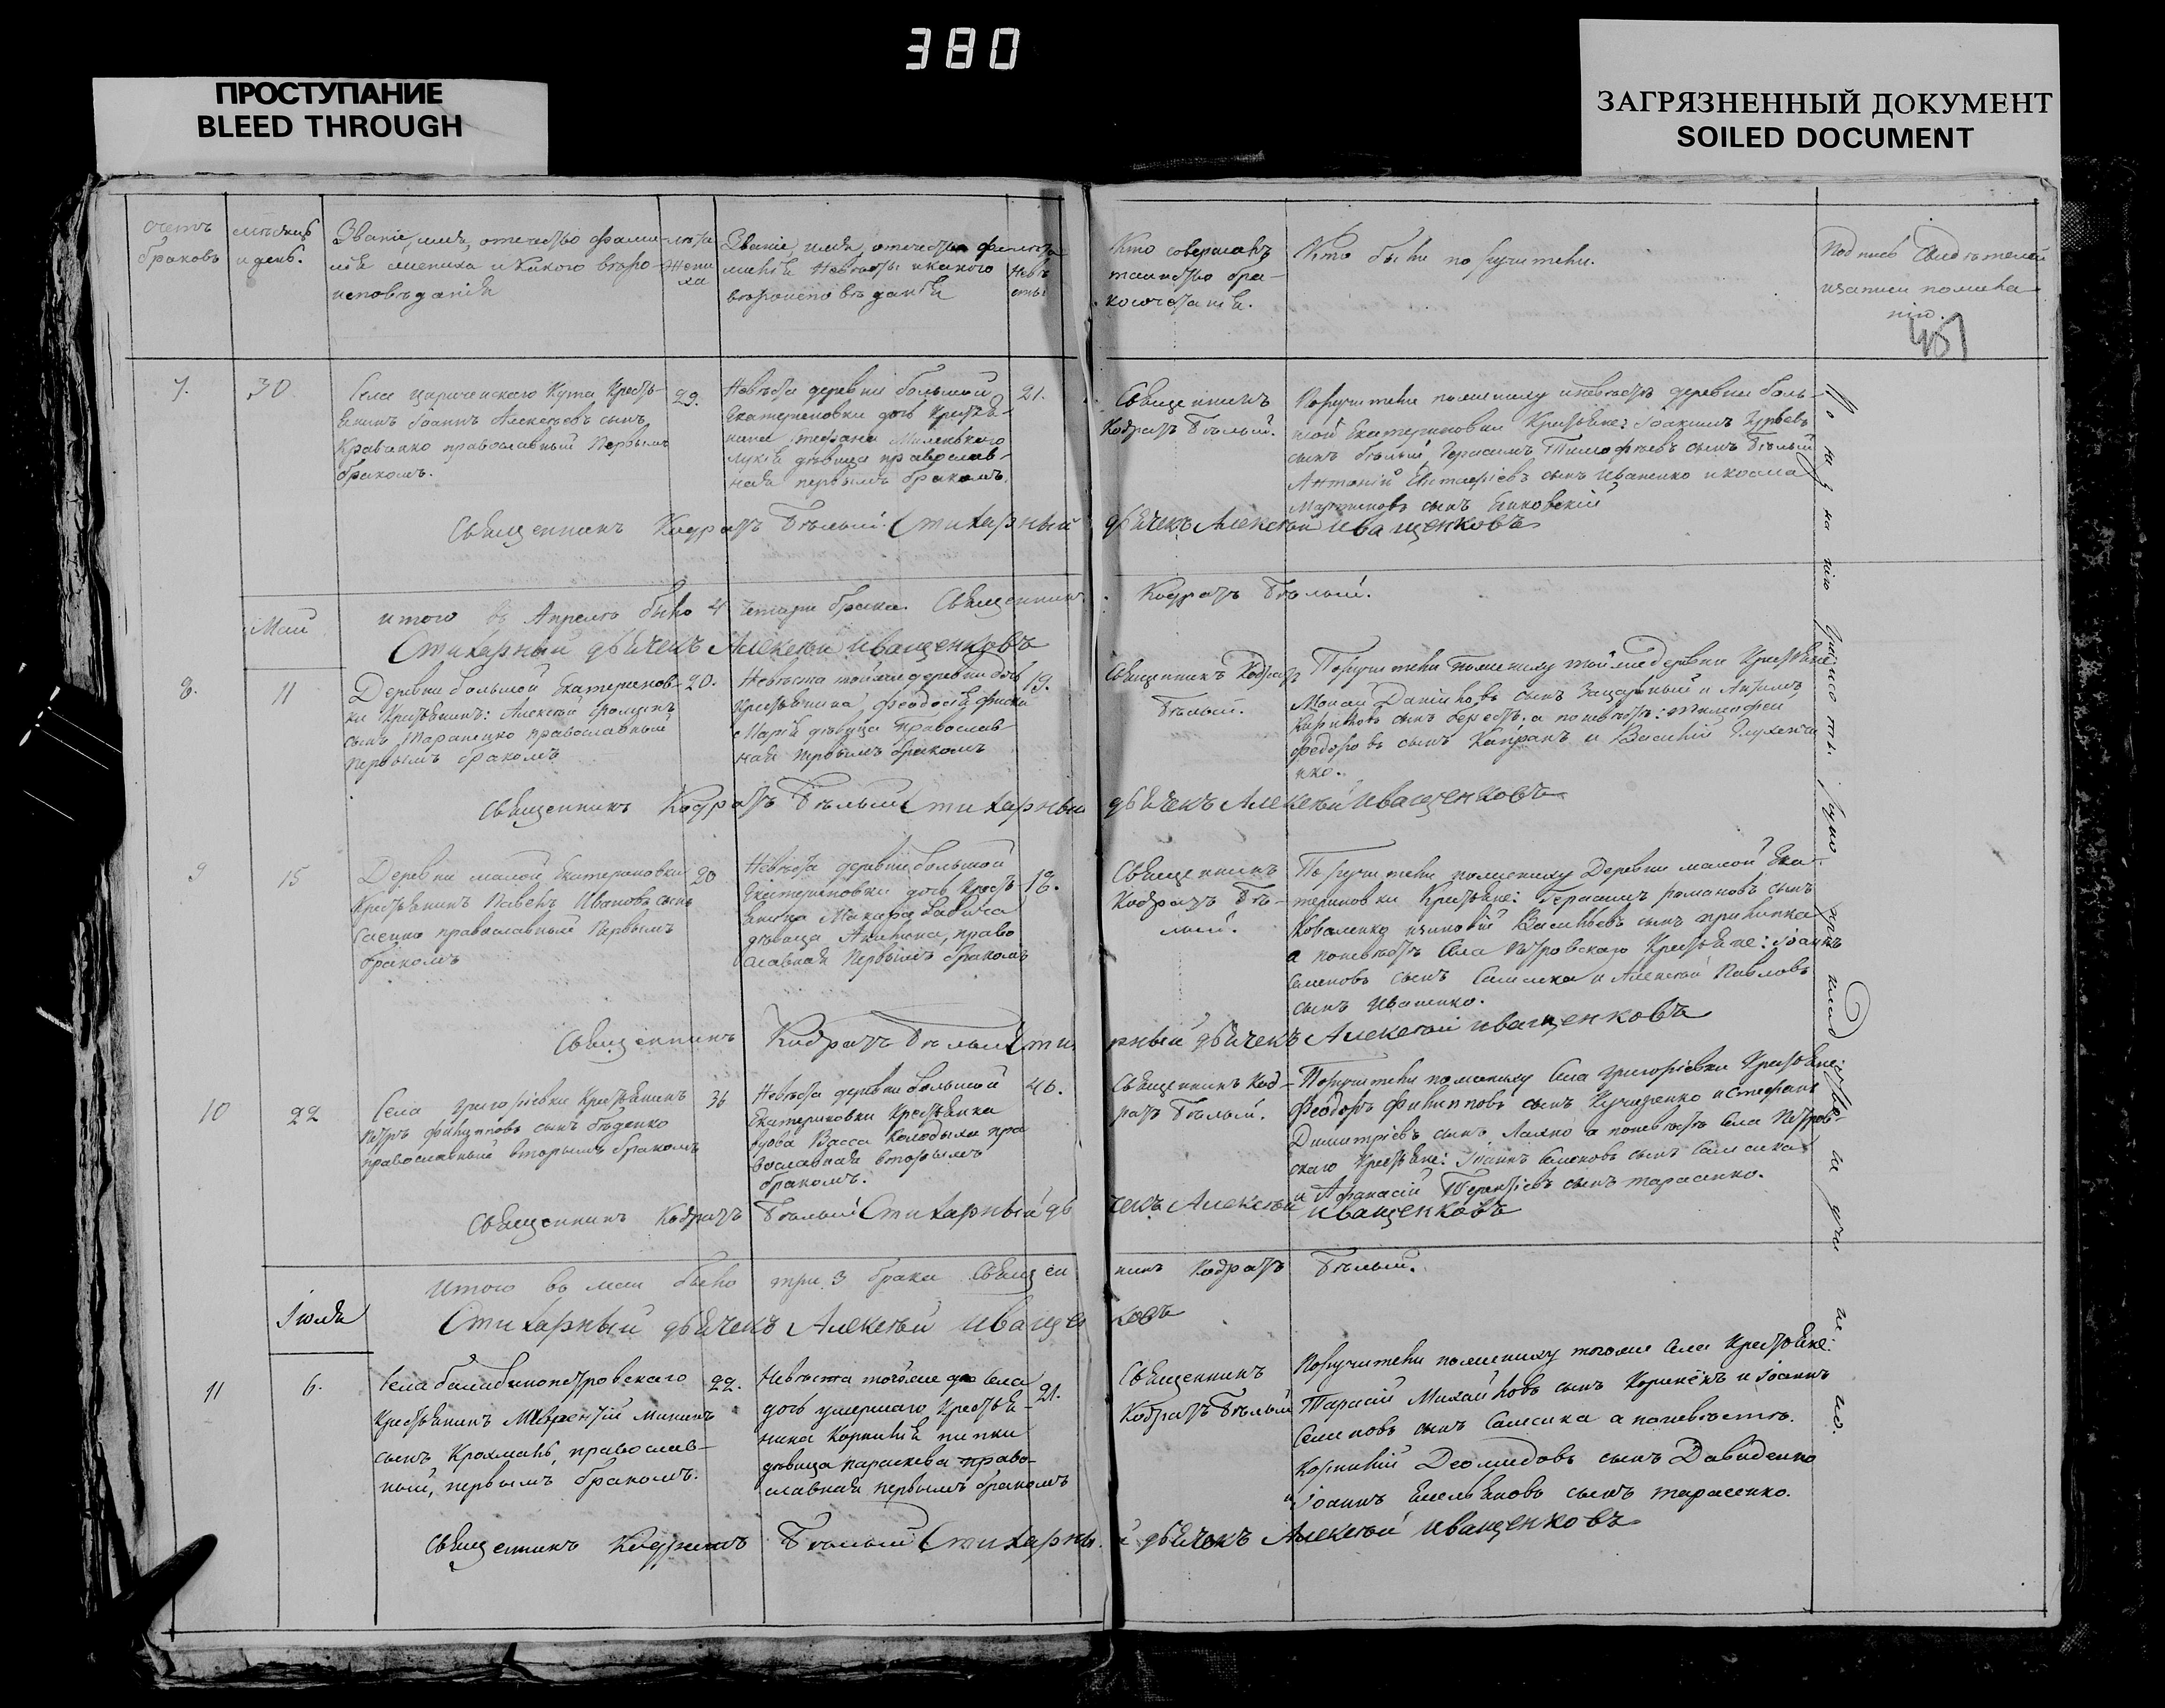 380
ПРОСТУПАНИЕ
BLEED THROUGH
ЗАГРЯЗНЕННЫЙ ДОКУМЕНТ
SOILED DOCUMENT
счетъ
браковъ
мѣсяцъ
и день.
Званіе, имя, отечество фами-
лія жениха и какого вѣро-
исповѣданія
лѣта
жени
ха
Званіе имя, отечество фа
милія невѣсты и какого
вѣроисповѣданія
лѣта
невѣ
сты
Кто совершалъ
таинство бра-
косочетанія.
Кто были поручители.
Подпись свидѣтелей
записи по жела
нію.
451
7.
30
Села Царичанскаго Кута Кресть-
янинъ Іоаннъ Алексѣевъ сынъ
Кравченко православный первымъ
бракомъ.
29.
Невѣста деревни большой
Екатериновки дочь Крестья-
нина Стефана Миленького
дѣвица православ-
ная первымъ бракомъ.
21.
Священникъ
Кодратъ Бѣлый.
Поручители по жениху и невѣстѣ деревни боль-
шой Екатериновки Крестьяне: Іоакимъ Юрьевъ
сынъ бѣлый, Герасимъ Тимофѣевъ сынъ Бѣлый
Антоній Евстафіевъ сынъ Иваненко и Косма
Мартиновъ сынъ
Священникъ Кодратъ Бѣлый. Стихарный дьячекъ Алексѣй Иващенковъ
итого въ Апрелѣ было 4 четыри брака. Священникъ Кодратъ Бѣлый.
Май
Стихарный дьячекъ Алексѣй Иващенковъ
8.
11
Деревни большой Екатеринов-
ки Крестьянинъ: Алексѣй Фоминъ
сынъ Тараненко православный
первымъ бракомъ
20.
Невѣста той же деревни дочь
Крестьянина, Феодосія
Марія дѣвица православ
ная первымъ бракомъ
19.
Священникъ Кодратъ
Бѣлый.
Поручители по жениху той же деревни Крестьяне
Даніиловъ сынъ и
Кириловъ сынъ а по невѣстѣ: Тимофей
Федоровъ сынъ и Василій
нко.
Священникъ Кодратъ Бѣлый Стихарный дьячекъ Алексѣй Иващенковъ
9
15
Деревни малой Екатериновки
Крестьянинъ Павелъ Ивановъ сынъ
православный первымъ
бракомъ
20
Невѣста деревни большой
Екатериновки дочь Кресть
янина Макара
дѣвица право
славная первымъ бракомъ
18.
Священникъ
Кодратъ Бѣ-
лый.
Поручители по жениху Деревни малой Ека-
териновки Крестьяне: Герасимъ Романовъ сынъ
Коваленко и Зиновій Васильевъ сынъ
а по невѣстѣ Села Петровскаго Крестьяне: Іоаннъ
Семеновъ сынъ Самсика и Алексѣй Павловъ
сынъ Иваненко.
Священникъ Кодратъ Бѣлый Стихарный дьячекъ Алексѣй Иващенковъ
10
22
Села Григорієвки Крестьянинъ
Петръ Филипповъ сынъ
православный вторымъ бракомъ
36
Невѣста деревни большой
Екатериновки Крестьянка
вдова Васса пра
вославная вторымъ
бракомъ.
46.
Священникъ Код-
ратъ Бѣлый.
Поручители по жениху Села Григоріевки Крестьяне:
Феодоръ Филипповъ сынъ и Стефанъ
Димитріевъ сынъ а по невѣстѣ Села Петров-
скаго Крестьяне: Іоаннъ Семеновъ сынъ Самсика
и Афанасій Терентіевъ сынъ Тарасенко.
Священникъ Кодратъ Бѣлый Стихарный дьячекъ Алексѣй Иващенковъ
Итого въ маи было три 3 брака Священникъ Кодратъ Бѣлый.
Іюля
Стихарный дьячекъ Алексѣй Иващенковъ
11
6.
Села балабинопетровскаго
Крестьянинъ Лаврентій Мининъ
сынъ Крохмаль, православ-
ный, первымъ бракомъ.
22.
Невѣста того же Села
дочь умершаго Крестья-
нина Корнилія
дѣвица параскева право-
славная первымъ бракомъ
21.
Священникъ
Кодратъ Бѣлый
Поручители по жениху того же Села Крестьяне:
Тарасій Михайловъ сынъ и Іоаннъ
Семеновъ сынъ Самсика а по невѣстѣ.
Корнилій Деомидовъ сынъ Давиденко
и Іоаннъ Емельяновъ сынъ Тарасенко.
Священникъ Кодратъ Бѣлый Стихарный дьячекъ Алексѣй Иващенковъ